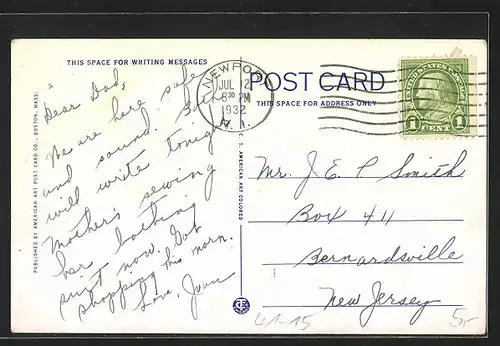 THIS SPACE FOR WRITING MESSAGES
Dear Dad,
We are here safe
and sound. Both
will write tonight
Mother's sewing
her bathing
suit now. Got
shopping this morn.
Love, Joan
PUBLISHED BY AMERICAN ART POST CARD CO., BOSTON, MASS.
C. T. AMERICAN ART COLORED
NEWPORT
JUL 2
8 30 PM
1932
R. I.
POST CARD
THIS SPACE FOR ADDRESS ONLY
UNITED STATES POSTAGE
1 CENT 1
Mr. J. E. P Smith
Box 411
Bernardsville
New Jersey
41-15
5.-